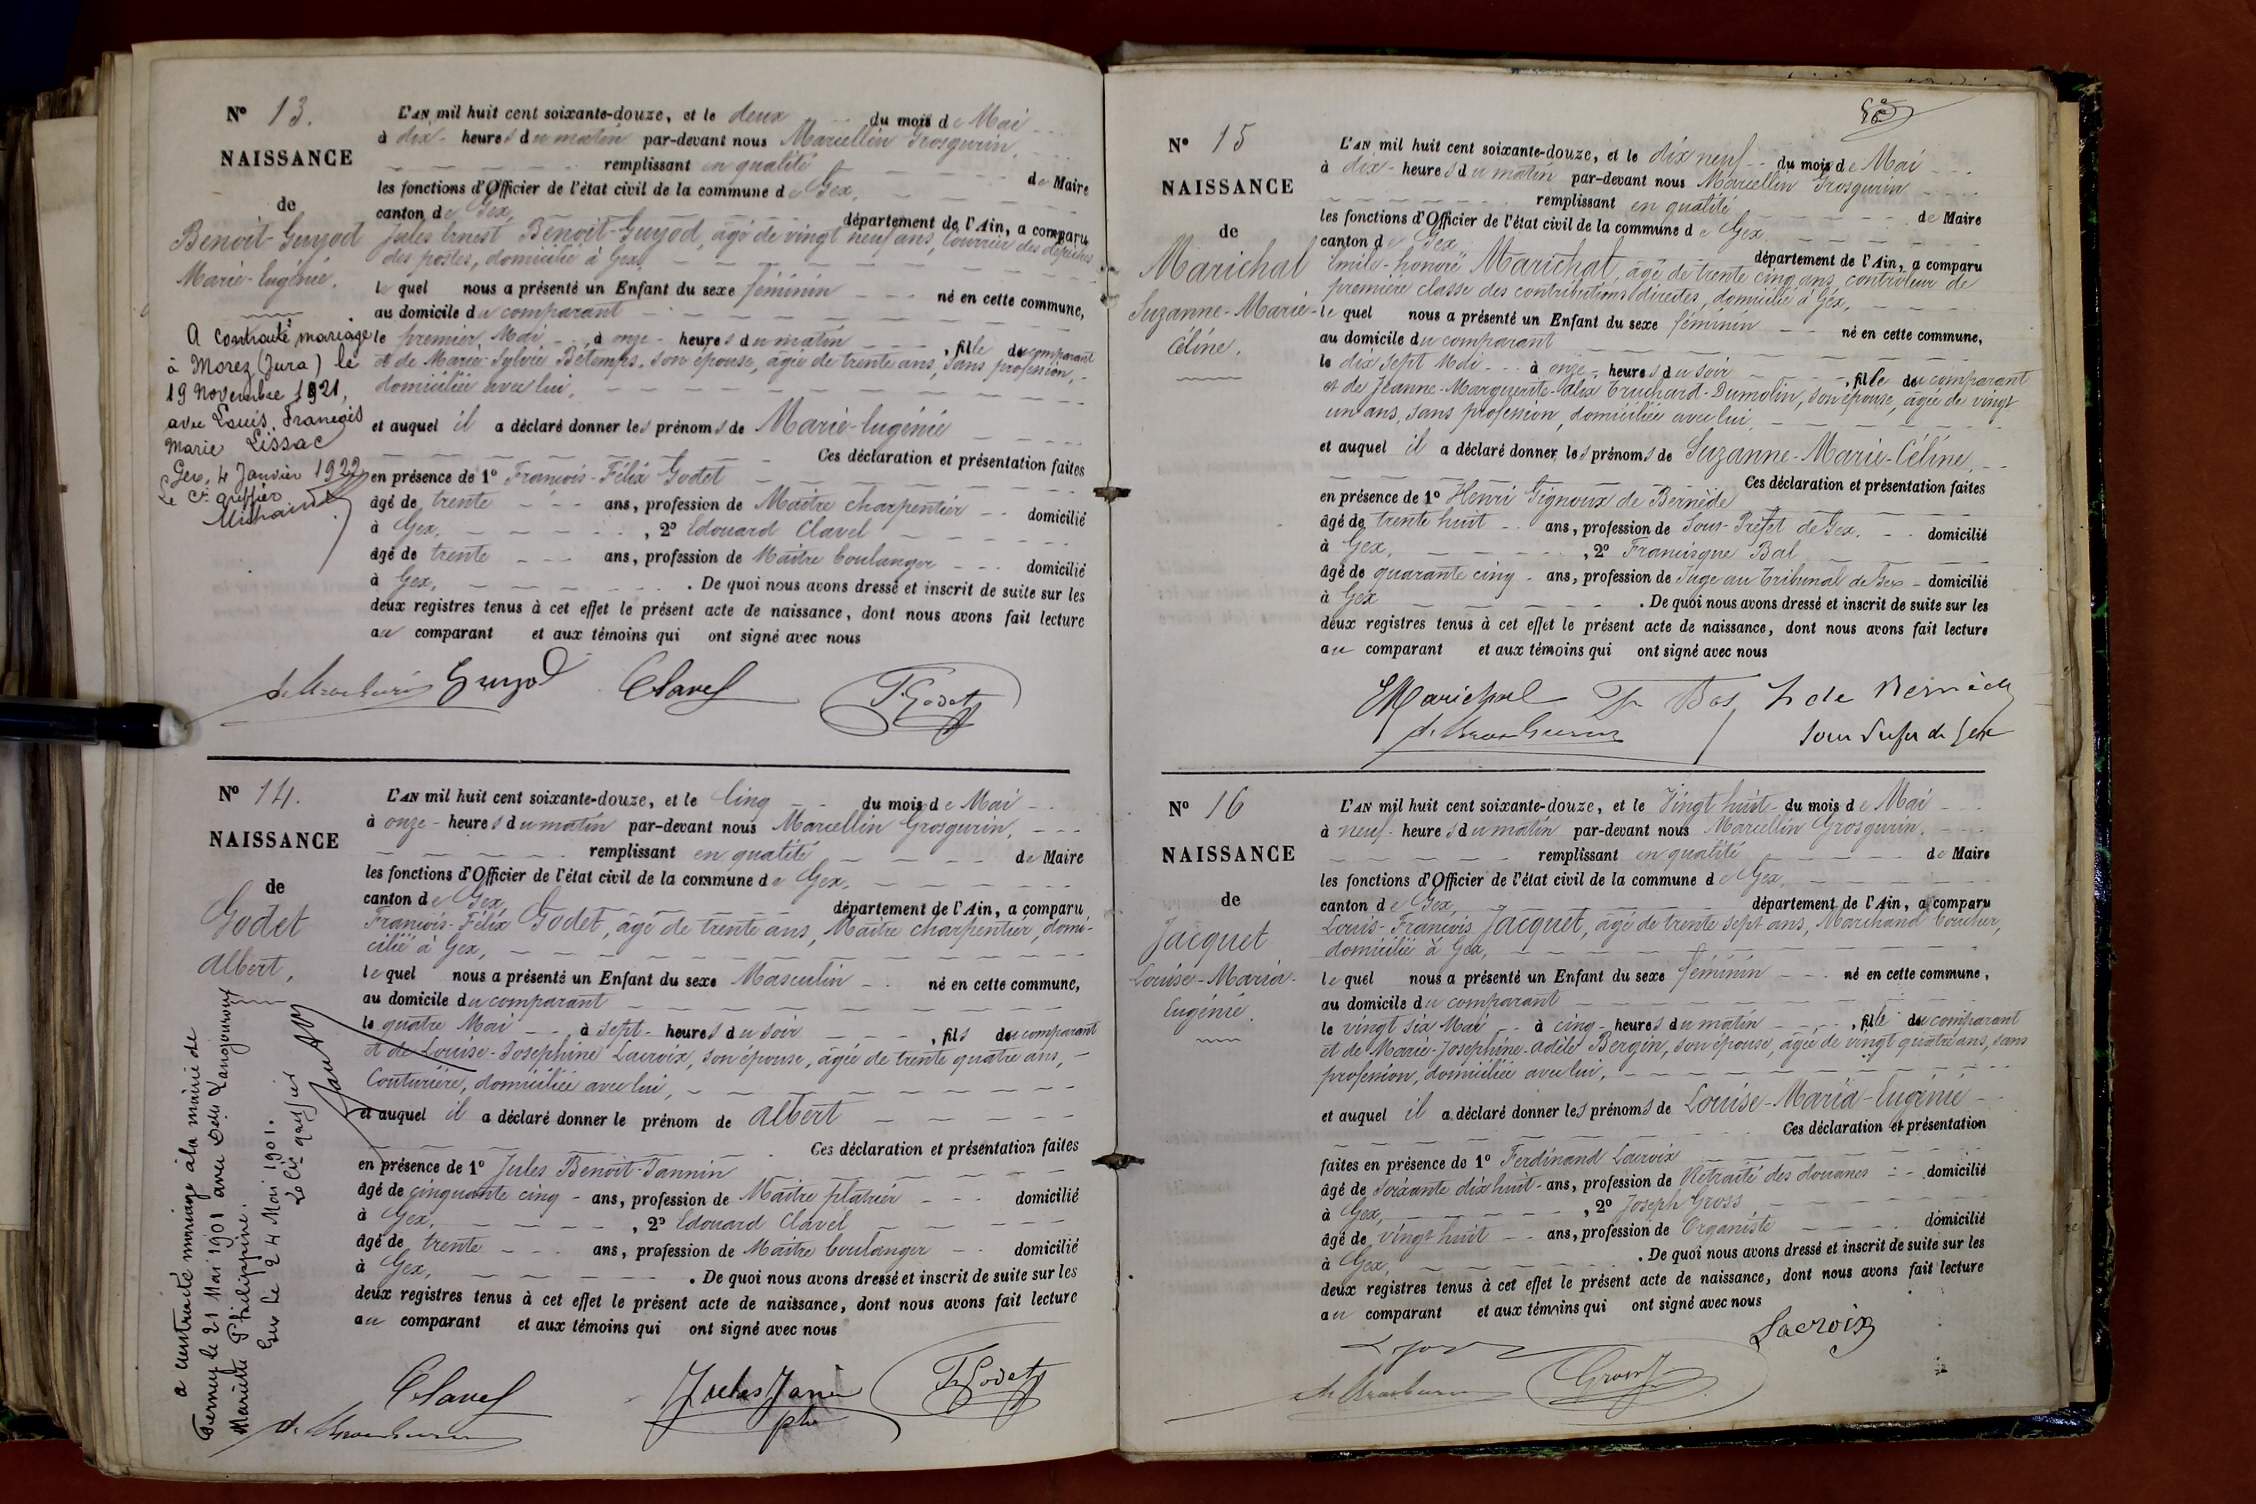 N° 13.
NAISSANCE
de
Benoit-Guyod
Marie-Eugénie.
A contracté mariage
à Morez (Jura) le
19 Novembre 1921,
avec Louis, François
Marie Lissac
Gex, 4 Janvier 1922
Le Cis greffier
L'AN mil huit cent soixante-douze, et le deux du mois de Mai
à dix heures du matin par-devant nous Marcellin Grosgurin,
remplissant en qualité de Maire
les fonctions d'Officier de l'état civil de la commune de Gex,
canton de Gex, département de l'Ain, a comparu
Jules Ernest Benoit-Guyod, âgé de vingt neuf ans, Courrier des dépêches
des postes, domicilié à Gex,
lequel nous a présenté un Enfant du sexe féminin né en cette commune,
au domicile du comparant
le premier Mai à onze heures du matin, fille du comparant
et de Marie-Sylvie Bétemps, son épouse, âgée de trente ans, sans profession,
domiciliée avec lui,
et auquel il a déclaré donner les prénoms de Marie-Eugénie
Ces déclaration et présentation faites
en présence de 1° François-Félix Godet
âgé de trente ans, profession de Maître charpentier domicilié
à Gex, , 2° Edouard Clavel
âgé de trente ans, profession de Maître boulanger domicilié
à Gex, . De quoi nous avons dressé et inscrit de suite sur les
deux registres tenus à cet effet le présent acte de naissance, dont nous avons fait lecture
au comparant et aux témoins qui ont signé avec nous
Guyod Clavel F. Godet
N° 14.
NAISSANCE
de
Godet
Albert,
a contracté mariage à la mairie de
Ferney le 21 Mai 1901 avec Delle
Mariette Philippine.
Gex Le 24 Mai 1901.
Le Cis greffier
L'AN mil huit cent soixante-douze, et le Cinq du mois de Mai
à onze heures du matin par-devant nous Marcellin Grosgurin,
remplissant en qualité de Maire
les fonctions d'Officier de l'état civil de la commune de Gex,
canton de Gex, département de l'Ain, a comparu
François-Félix Godet, âgé de trente ans, Maître charpentier, domi-
cilié à Gex,
lequel nous a présenté un Enfant du sexe Masculin né en cette commune,
au domicile du comparant
le quatre Mai à sept heures du soir, fils du comparant
et de Louise-Josephine Lacroix, son épouse, âgée de trente quatre ans,
Couturière, domiciliée avec lui,
et auquel il a déclaré donner le prénom de Albert
Ces déclaration et présentation faites
en présence de 1° Jules Benoit-Jannin
âgé de cinquante cinq ans, profession de Maître platrier domicilié
à Gex, , 2° Edouard Clavel
âgé de trente ans, profession de Maître boulanger domicilié
à Gex, . De quoi nous avons dressé et inscrit de suite sur les
deux registres tenus à cet effet le présent acte de naissance, dont nous avons fait lecture
au comparant et aux témoins qui ont signé avec nous
Clavel Jules Janin F. Godet
N° 15
NAISSANCE
de
Marichal
Suzanne-Marie-
Céline.
L'AN mil huit cent soixante-douze, et le dix neuf du mois de Mai
à dix heures du matin par-devant nous Marcellin Grosgurin
remplissant en qualité de Maire
les fonctions d'Officier de l'état civil de la commune de Gex
canton de Gex département de l'Ain, a comparu
Emile-honoré Marichal, âgé de trente cinq ans, contrôleur de
première classe des contributions directes, domicilié à Gex,
lequel nous a présenté un Enfant du sexe féminin né en cette commune,
au domicile du comparant
le dix sept Mai à onze heures du soir, fille du comparant
et de Jeanne-Marguerite-Alix Truchard-Dumolin, son épouse, âgée de vingt
un ans, sans profession, domiciliée avec lui,
et auquel il a déclaré donner les prénoms de Suzanne-Marie-Céline,
Ces déclaration et présentation faites
en présence de 1° Henri Gignoux de Bernède
âgé de trente huit ans, profession de Sous-Préfet de Gex. domicilié
à Gex, , 2° Francisque Bal
âgé de quarante cinq ans, profession de Juge au Tribunal de Gex domicilié
à Gex . De quoi nous avons dressé et inscrit de suite sur les
deux registres tenus à cet effet le présent acte de naissance, dont nous avons fait lecture
au comparant et aux témoins qui ont signé avec nous
Marichal H de Bernède
Sous Préfet de Gex
N° 16
NAISSANCE
de
Jacquet
Louise-Maria-
Eugénie.
L'AN mil huit cent soixante-douze, et le Vingt huit du mois de Mai
à neuf heures du matin par-devant nous Marcellin Grosgurin,
remplissant en qualité de Maire
les fonctions d'Officier de l'état civil de la commune de Gex,
canton de Gex, département de l'Ain, a comparu
Louis-François Jacquet, âgé de trente sept ans, Marchand boucher,
domicilié à Gex,
lequel nous a présenté un Enfant du sexe féminin né en cette commune,
au domicile du comparant
le vingt six Mai à cinq heures du matin, fille du comparant
et de Marie-Josephine-Adèle Bergin, son épouse, âgée de vingt quatre ans, sans
profession, domiciliée avec lui,
et auquel il a déclaré donner les prénoms de Louise-Maria-Eugénie
Ces déclaration et présentation
faites en présence de 1° Ferdinand Lacroix
âgé de soixante dix huit ans, profession de Retraité des douanes domicilié
à Gex, , 2° Joseph Gross
âgé de vingt huit ans, profession de Organiste domicilié
à Gex, . De quoi nous avons dressé et inscrit de suite sur les
deux registres tenus à cet effet le présent acte de naissance, dont nous avons fait lecture
au comparant et aux témoins qui ont signé avec nous
Lacroix
Gross